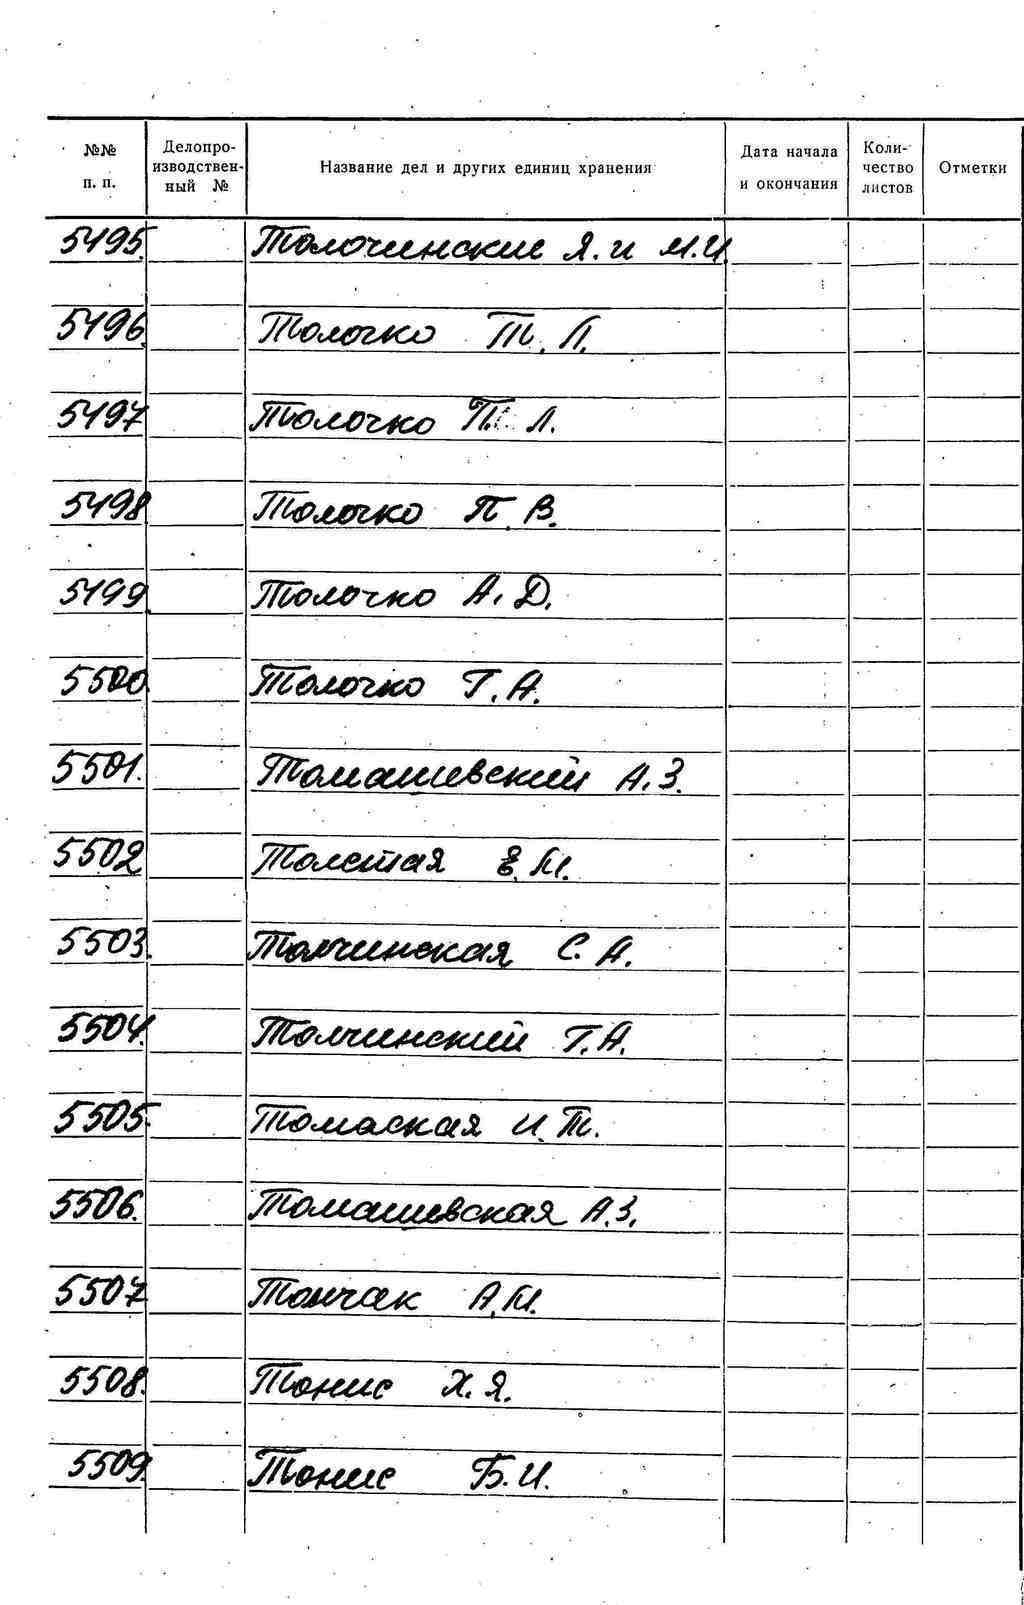 №№ п. п.
Делопро-
изводствен-
ный №
Название дел и других единиц хранения
Дата начала
и окончания
Коли-
чество
листов
Отметки
5495. Толочинские Я. и М.И.
5496. Толочко Т. Л.
5497 Толочко П. Л.
5498 Толочко П. В.
5499. Толочко А. D.
5500 Толочко Г. А.
5501. Томашевский А. З.
5502 Толстая Е. М.
5503. Толчинская С. А.
5504. Толчинский Г. А.
5505. Томаская И. Т.
5506. Томашевская А. З.
5507 Тончак А. М.
5508. Тонис Х. Я.
5509. Тонис Б. И.